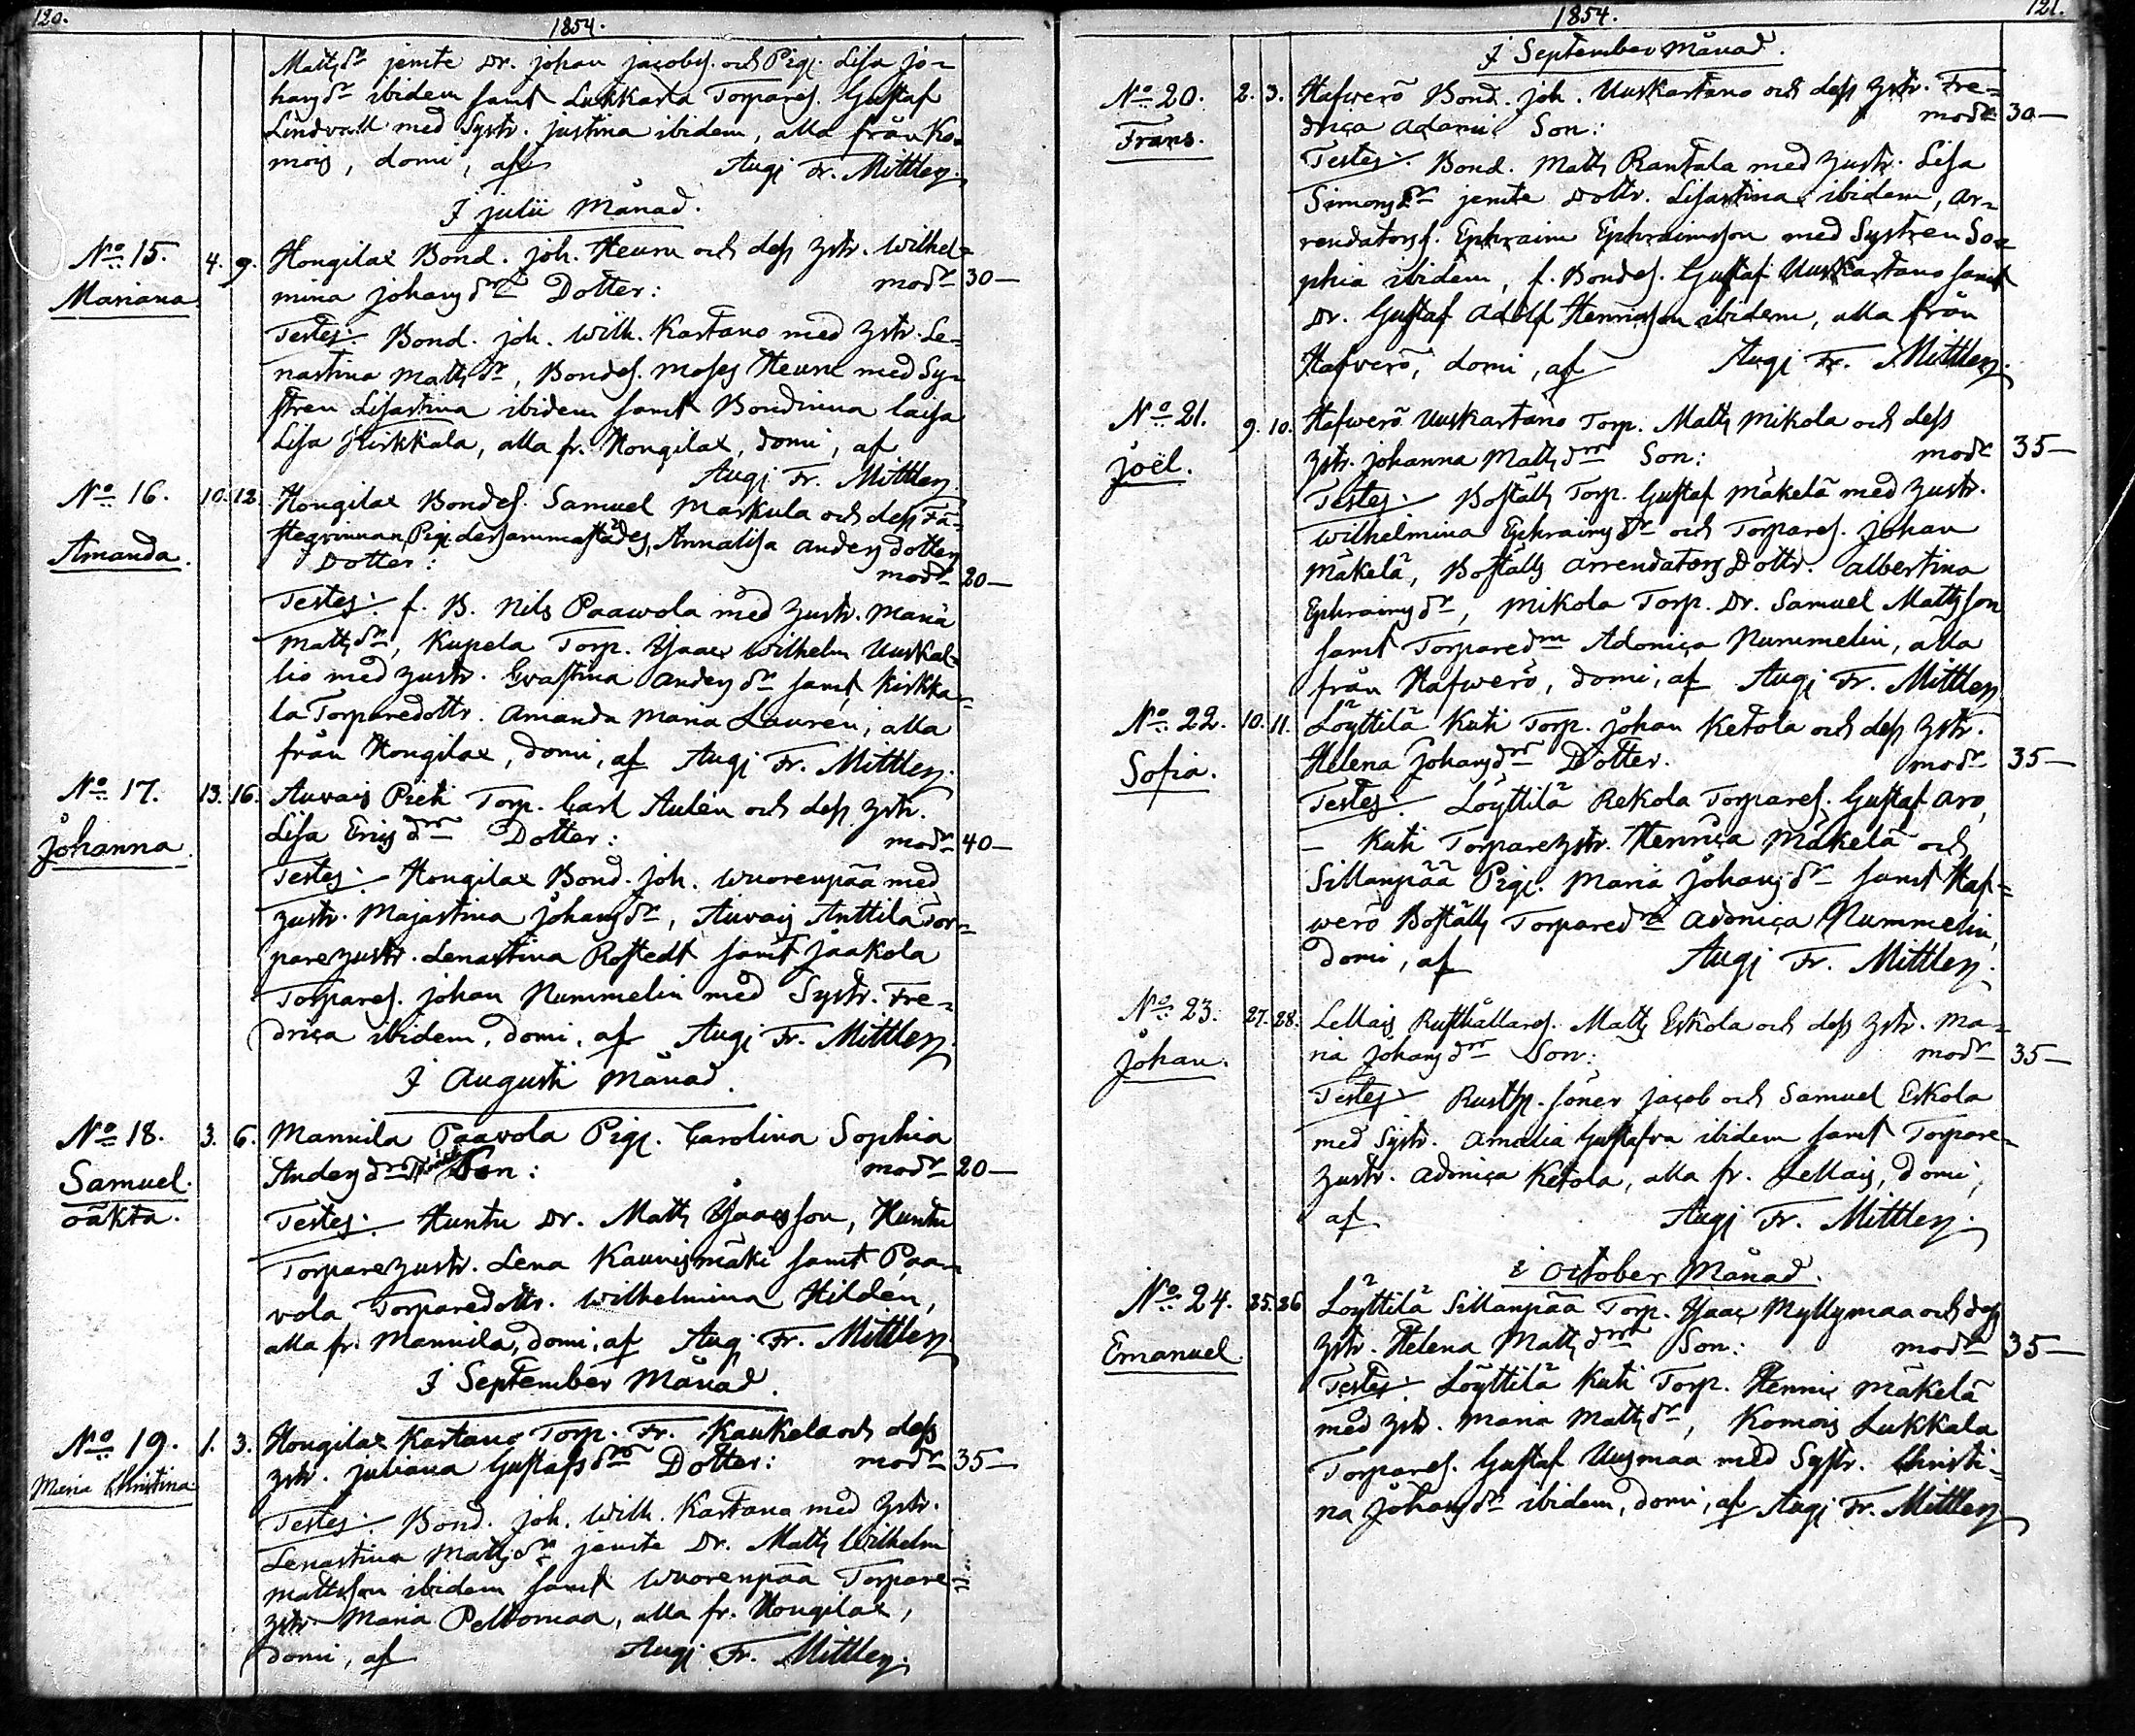 120.
1854.
Mattsdr jemte Dr. Johan Jacobss. och Pig. Lisa Jo-
hansdr ibidem samt Lukkarla Torpares. Gustaf
Lindvall med Systr. Justina ibidem, alla från Ko-
mois, domi, af Augi Fr. Mittler.
I Julii Månad.
No 15. 4. 9. Hongilax Bond. Joh. Heurn och dess Zstr. Wilhel-
Mariana mina Johansdrs Dotter: modr 30—
Testes: Bond. Joh. Wilh. Kartano med Zstr. Le-
nastina Mattsdr, Bondes. Moses Heurn med Sy-
stren Lisastina ibidem samt Bondinna Caisa
Lisa Kirkkala, alla fr. Hongilax, domi, af
Augi Fr. Mittler.
No 16. 10. 12. Hongilax Bondes. Samuel Markula och dess Fä-
Amanda. steqvinnan, Pig. dersammastädes, Annalisa Andersdotters
Dotter: modr 20—
Testes: f. B. Nils Paawola med Zustr. Maria
Mattsdr, Kupela Torp. Isaac Wilhelm Uuskal-
lio med Zustr. Evastina Andersdr samt Kirkka-
la Torparedottr. Amanda Maria Lauren, alla
från Hongilax, domi, af Augi Fr. Mittler.
No 17. 13. 16. Auvais Pieti Torp. Carl Aulen och dess Zstr.
Johanna. Lisa Ericsdrs Dotter: modr 40—
Testes: Hongilax Bond. Joh. Wuorenpää med
Zustr. Majastina Johansdr, Auvais Anttila Tor-
parezustr. Lenastina Rostedt samt Jaakola
Torpares. Johan Nummelin med Systr. Fre-
drica ibidem, domi, af Augi Fr. Mittler.
I Augusti Månad.
No 18. 3. 6. Mannila Paavola Pig. Carolina Sophia
Samuel. Andersdrs Son: modr 20—
oäkta. Testes: Huntu Dr. Matts Isacsson, Huntu
Torparezustr. Lena Kaunismäki samt Paa-
vola Torparedottr. Wilhelmina Hilden,
alla fr. Mannila, domi, af Augi Fr. Mittler.
I September Månad.
No 19. 1. 3. Hongilax Kartano Torp. Fr. Kaukela och dess
Maria Christina zstr. Juliana Gustafsdrs Dotter: modr 35—
Testes: Bond. Joh. Wilh. Kartano med Zstr.
Lenastina Mattsdr jemte Dr. Matts Wilhelm
Mattsson ibidem samt Wuorenpää Torpare-
zstr. Maria Peltomaa, alla fr. Hongilax,
domi, af Augi Fr. Mittler.
121.
1854.
I September Månad.
No 20. 2. 3. Hafverö Bond. Joh. Uuskartano och dess Zstr. Fre-
Frans. drica Adami Son: modr 30—
Testes: Bond. Matts Rantala med Zustr. Lisa
Simonsdr jemte Dottr. Lisastina ibidem, Ar-
rendators s. Ephraim Ephraimsson med Systren So-
phia ibidem, f. Bondes. Gustaf Uuskartano samt
Dr. Gustaf Adolf Henricsson ibidem, alla från
Hafverö, domi, af Augi Fr. Mittler.
No 21. 9. 10. Hafwerö Uuskartano Torp. Matts Mikola och dess
Joël. zstr. Johanna Mattsdrs Son: modr 35—
Testes: Boställs Torp. Gustaf Mäkelä med Zustr.
Wilhelmina Ephraimsdr och Torpares. Johan
Mäkelä, Boställs Arrendators Dottr. Albertina
Ephraimsdr, Mikola Torp. Dr. Samuel Mattsson
samt Torparedrn Adonica Nummelin, alla
från Hafwerö, domi, af Augi Fr. Mittler
No 22. 10. 11. Löyttilä Kuti Torp. Johan Ketola och dess Zstr.
Sofia. Helena Johansdrs Dotter. modr 35—
Testes: Löyttilä Rekola Torpares. Gustaf Aro,
— Kuti Torparezstr. Henrica Mäkelä och
Sillanpää Pig. Maria Johansdr samt Haf-
werö Boställs Torparedrn Adonica Nummelin,
domi, af Augi Fr. Mittler.
No 23. 27. 28. Lellais Rusthållares. Matts Eskola och dess Zstr. Ma-
Johan. ria Johansdrs Son: modr 35—
Testes: Rusth. söner Jacob och Samuel Eskola
med Systr. Amalia Gustafva ibidem samt Torpare-
zustr. Adonica Ketola, alla fr. Lellais, domi,
af Augi Fr. Mittler.
i October Månad.
No 24. 25. 26. Löyttilä Sillanpää Torp. Isaac Myllymaa och dess
Emanuel. Zstr. Helena Mattsdrs Son: modr 35—
Testes: Löyttilä Kuti Torp. Henric Mäkelä
med Zstr. Maria Mattsdr, Komois Lukkala
Torpares. Gustaf Uusmaa med Systr. Christi-
na Johansdr ibidem, domi, af Augi Fr. Mittler